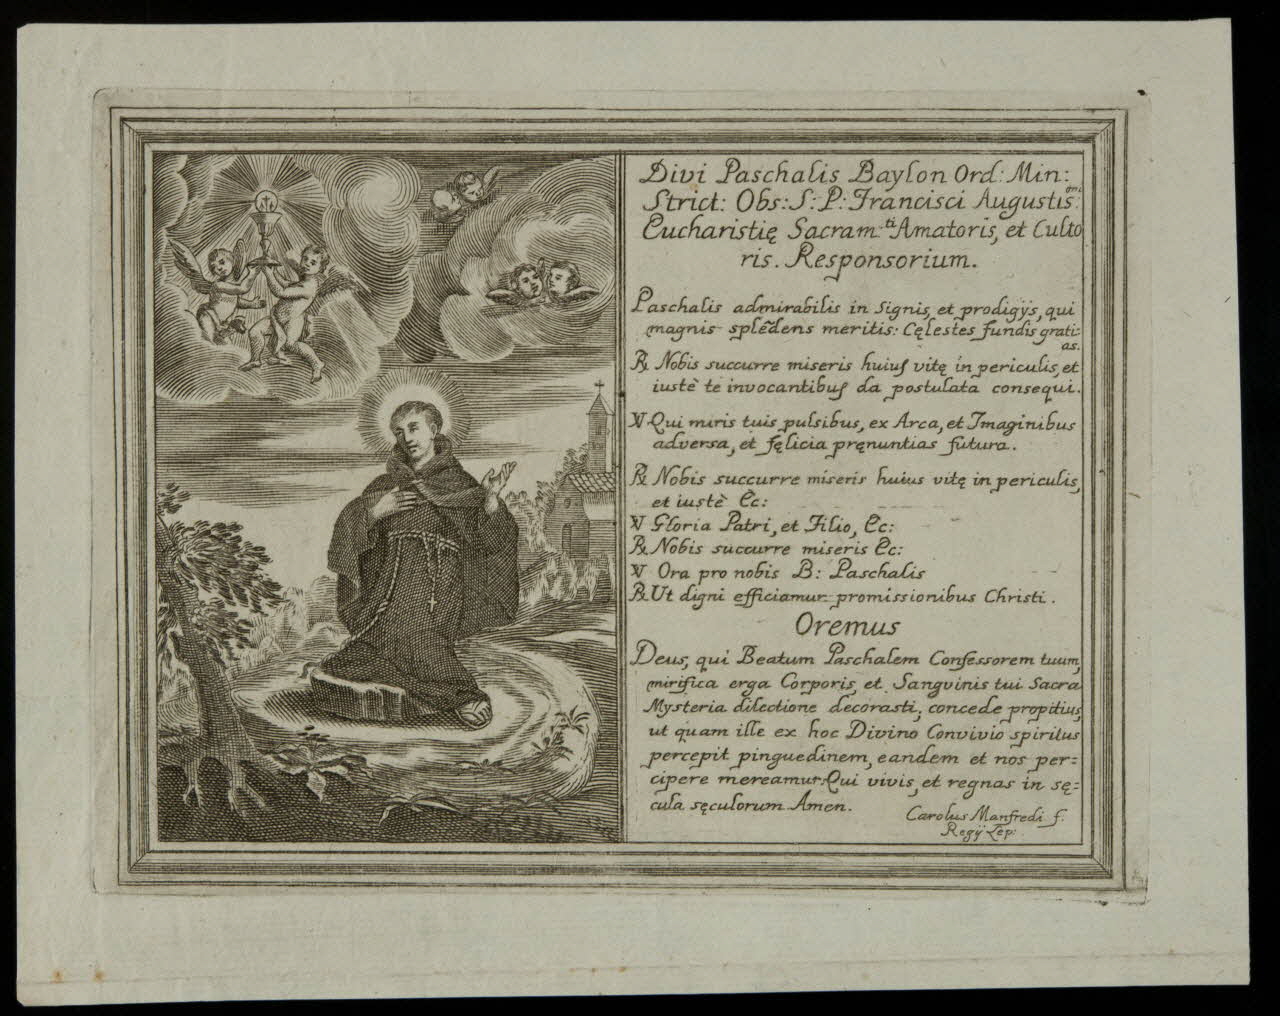 Divi Paschalis Baylon Ord: Min:
Strict: Obs: S: P: Francisci Augustis:mi
Eucharistię Sacram:ti Amatoris, et Culto
ris. Responsorium.
Paschalis admirabilis in signis, et prodigÿs, qui
magnis splēdens meritis: Cęlestes fundis grati-
as.
℟ Nobis succurre miseris huius vitę in periculis, et
iustè te invocantibus da postulata consequi.
℣ Qui miris tuis pulsibus, ex Arca, et Imaginibus
adversa, et fęlicia pręnuntias futura.
℟ Nobis succurre miseris huius vitę in periculis,
et iustè &c:
℣ Gloria Patri, et Filio, &c:
℟ Nobis succurre miseris &c:
℣ Ora pro nobis B: Paschalis
℟ Ut digni efficiamur promissionibus Christi.
Oremus
Deus, qui Beatum Paschalem Confessorem tuum,
mirifica erga Corporis, et Sangvinis tui Sacra
Mysteria dilectione decorasti, concede propitius,
ut quam ille ex hoc Divino Convivio spiritus
percepit pinguedinem, eandem et nos per=
cipere mereamur: Qui vivis, et regnas in sę=
cula sęculorum Amen.
Carolus Manfredi f.
Regÿ Lep: